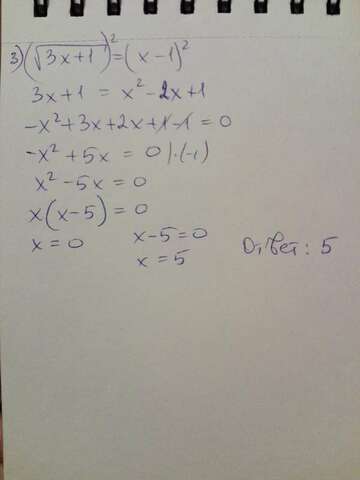 3) (√3x+1)² = (x-1)²
3x+1 = x²-2x+1
-x²+3x+2x+1-1 = 0
-x²+5x = 0 |·(-1)
x²-5x = 0
x(x-5) = 0
x = 0 x-5=0 Ответ: 5
x = 5